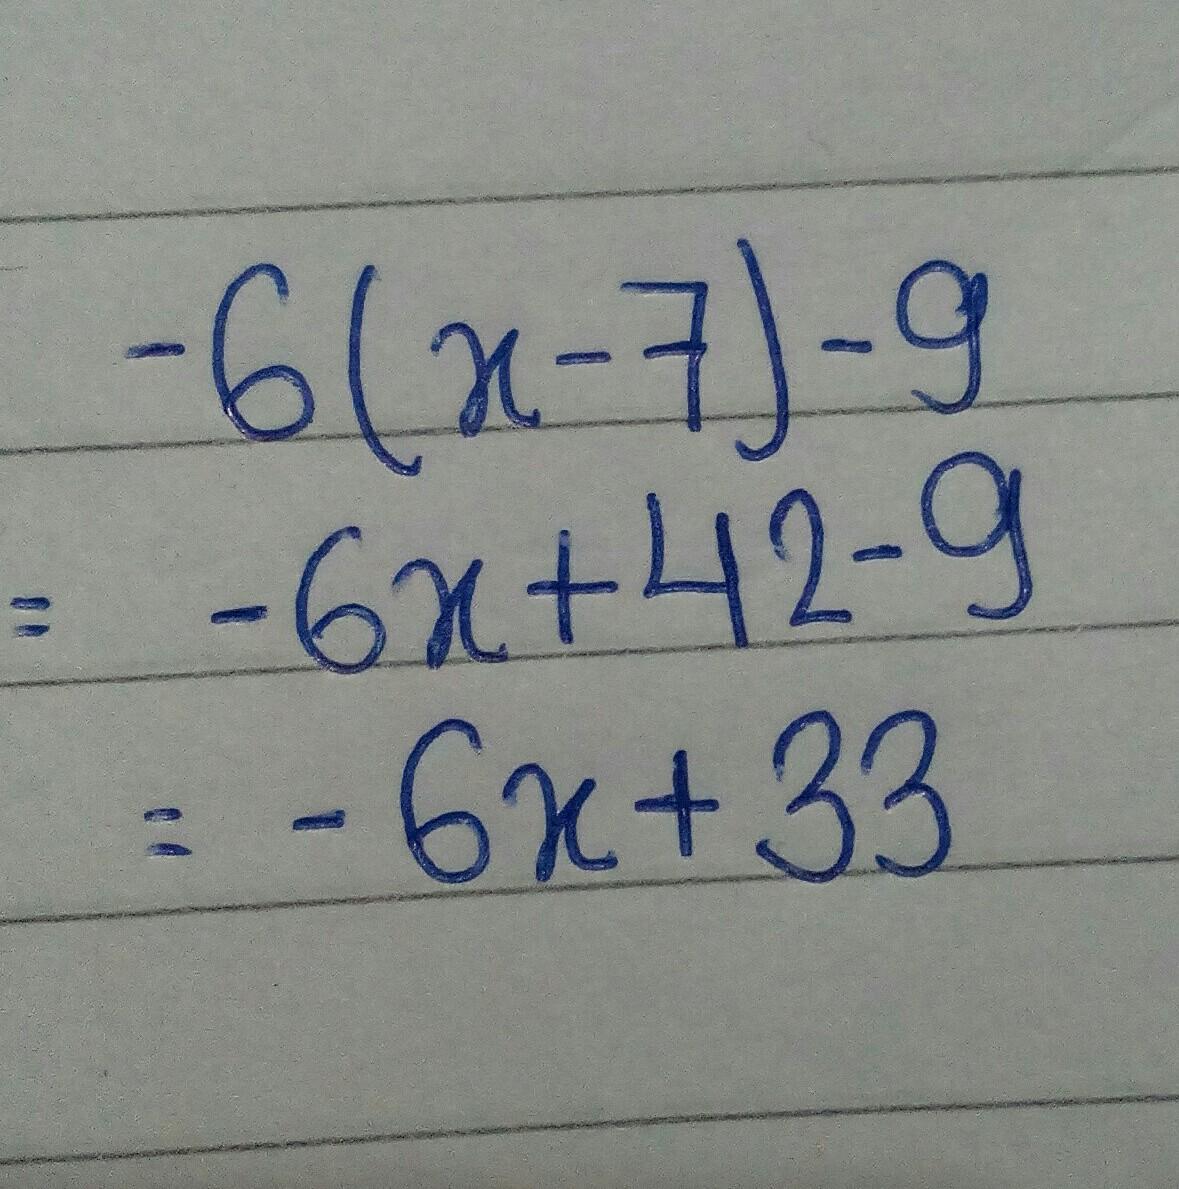 -6(x-7)-9
= -6x+42-9
= -6x+33